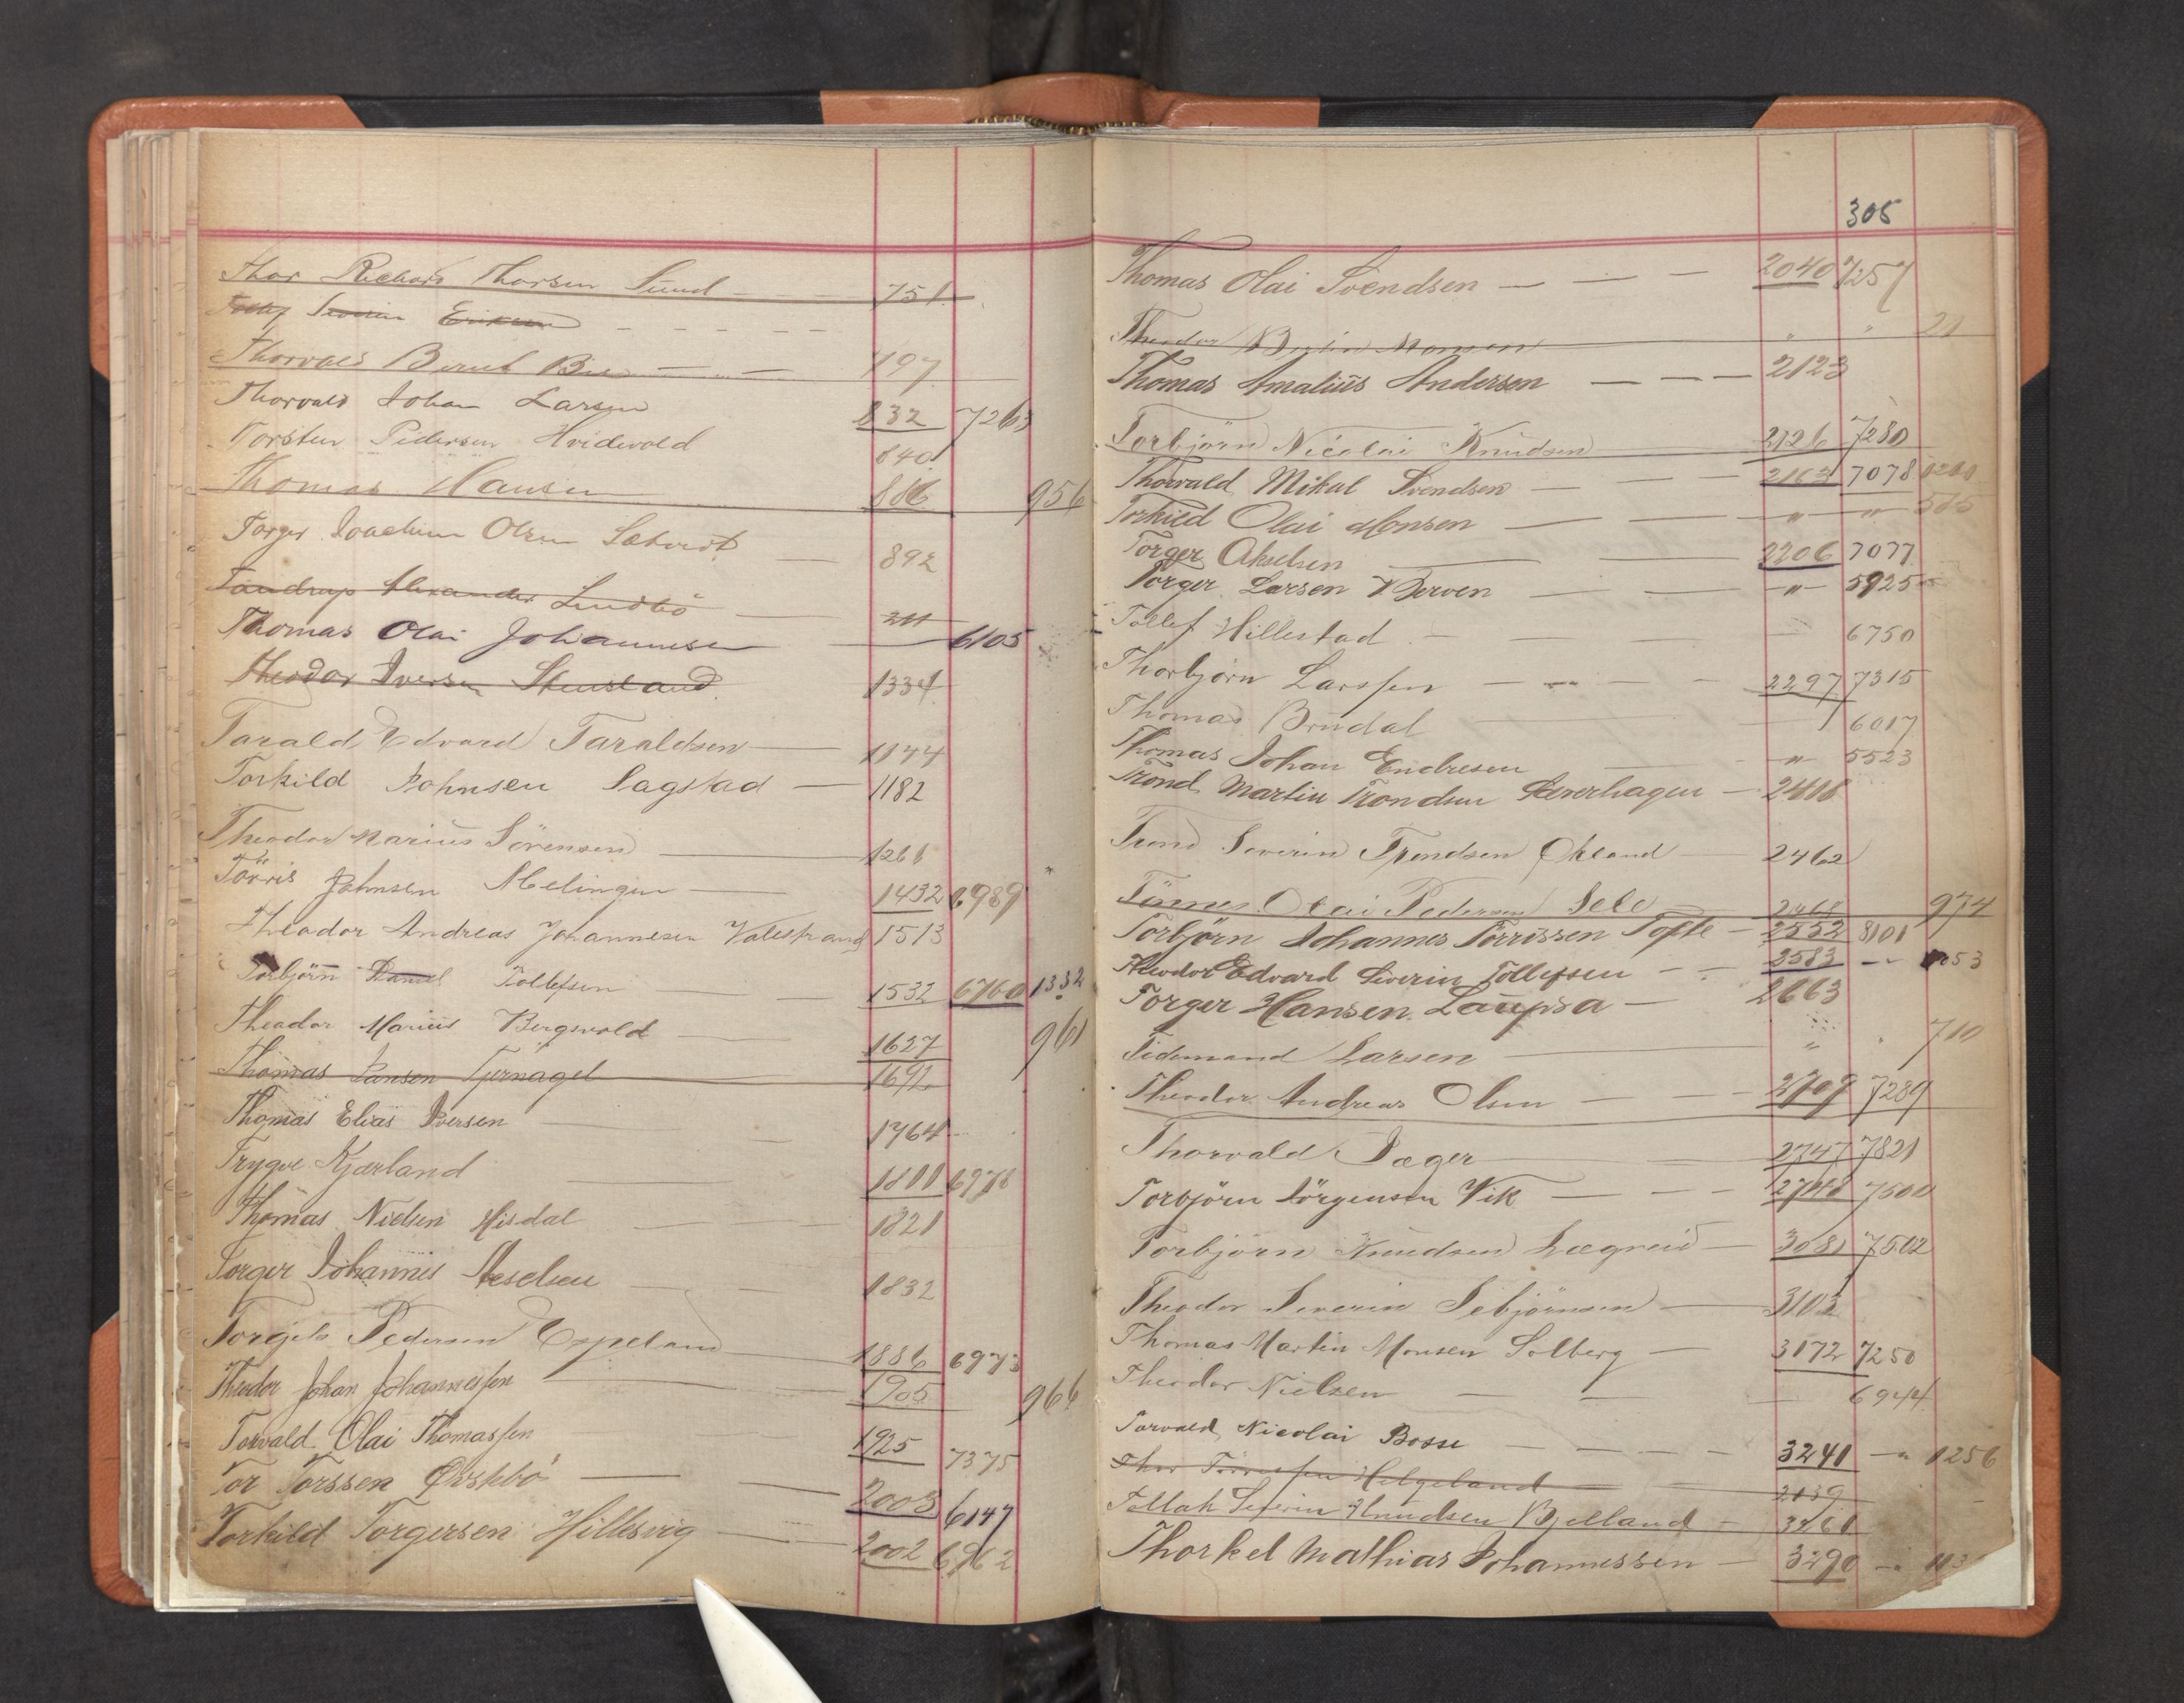 Thor Richard Thorsen Sund 751
Severin Eriksen
Thorvald Bernt 797
Thorvald Johan Larsen 832 7263
Torsten Pedersen Hvidevold 840
Thomas Hansen 886 956
Torger Joachim Olsen 892
Tandrup Alexander Lindbö
Thomas Olai Johannesen 6105
Theodor Iversen Stensland 1334
Tarald Edvard Taraldsen 1144
Torkild Johnsen Sagstad 1182
Theodor Marius Sörensen 1268
Törris Johnsen Melingen 1432 6989
Theodor Andreas Johannesen Valestrand 1513
Torbjörn Daniel Tollefsen 1532 6760 1332
Theodor Marius Bergsvold 1627 961
Thomas Hansen Tjernagel 1691
Thomas Elias Iversen 1764
Trygve Kjærland 1811 6978
Thomas Nielsen Misdal 1821
Torger Johannes Aeselsen 1832
Torgils Pedersen Espeland 1886 6973
Theodor Johan Johannessen 1905 966
Torvald Olai Thomassen 1925 7375
Tor Torssen Ørskbö 2003 6147
Torkild Torgersen Hillesvig 2002 6962
305
Thomas Olai Svendsen 2040 7257
Theodor Bertin Monsen " " 21
Thomas Amalius Andersen 2123
Torbjörn Nicolai Knudsen 2126 7280
Thorvald Mikal Svendsen 2163 7078
Torkild Olai Monsen " " 515
Torger Akselsen 2206 7077
Torger Larsen Berven " 5925
Tollef Hillestad 6750
Thorbjörn Larssen 2297 7315
Thomas Brudal 6017
Thomas Johan Endresen " 5523
Trond Martin Trondsen 2418
Trond Severin Trondsen Økland 2462
Tönnes Olai Pedersen Sele 2468 974
Torbjörn Johannes Törrissen Tofte 2552 8101
Theodor Edvard Severin Tollefsen 2583 " 1053
Torger Hansen Laupsa 2663
Tidemand Larsen " " 710
Theodor Andreas Olsen 2707 7289
Thorvald Jæger 2747 7821
Torbjörn Jörgensen Vik 2748 7501
Torbjörn Knudsen Lægreid 3081 7502
Theodor Severin Sebjörnsen 3103
Thomas Martin Monsen Solberg 3172 7250
Theodor Nielsen 6944
Torvald Nicolai Bosse 3241 " 1256
Thor Tönnessen Helgeland 2039
Tollak Severin Knudsen Bjelland 3261
Thorkel Mathias Johannessen 3290 "